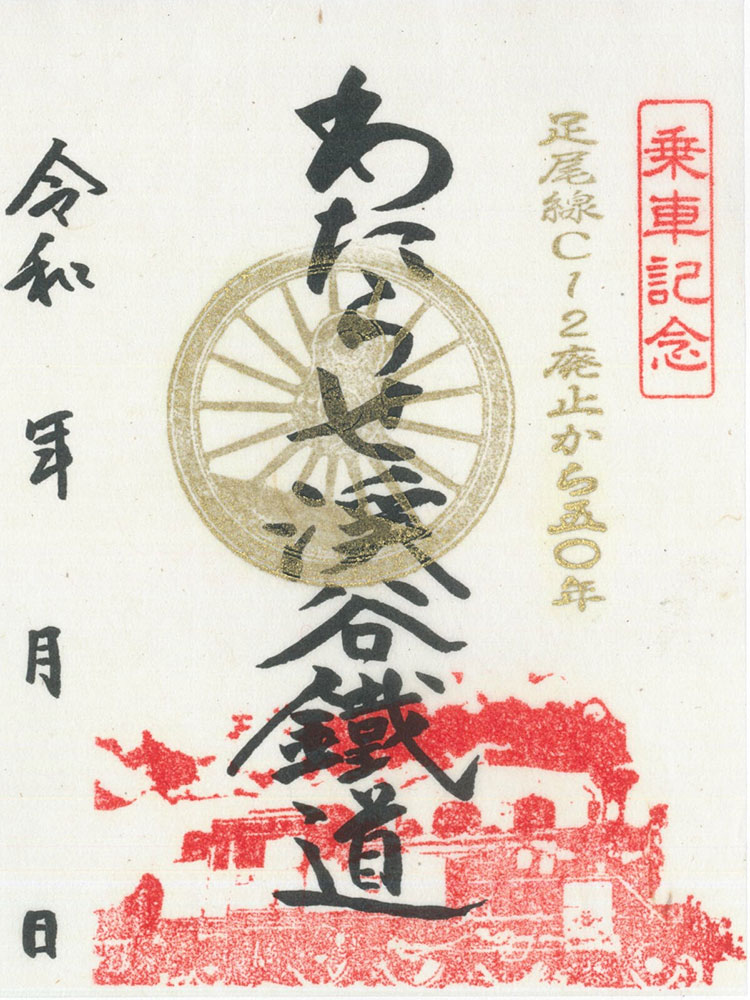 乗車記念
足尾線C12廃止から五〇年
わたらせ渓谷鐵道
令和 年 月 日